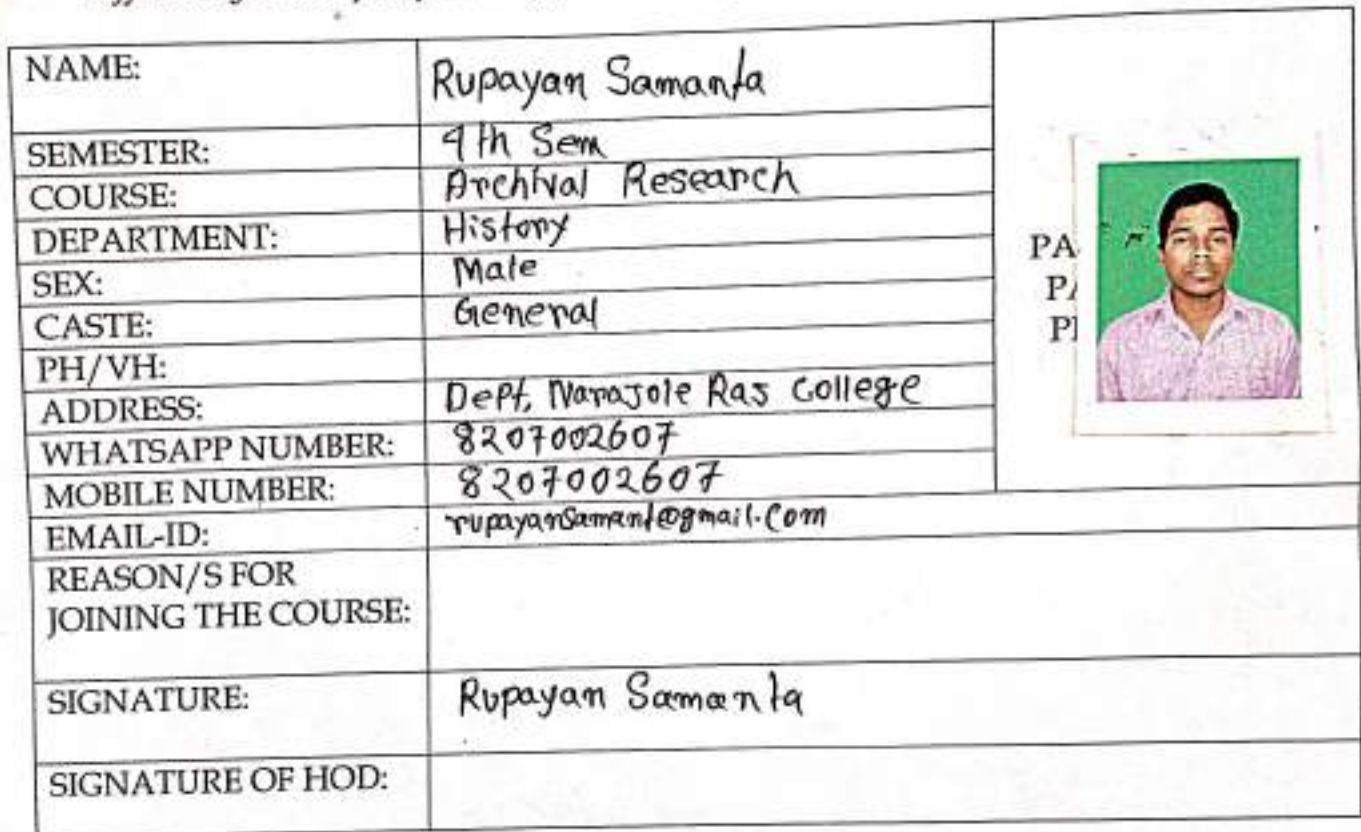 NAME: Rupayan Samanta
SEMESTER: 4th Sem
COURSE: Archival Research
DEPARTMENT: History
SEX: Male
CASTE: General
PH/VH:
ADDRESS: Dept, Narajole Raj College
WHATSAPP NUMBER: 8207002607
MOBILE NUMBER: 8207002607
EMAIL-ID: rupayansamant@gmail.com
REASON/S FOR
JOINING THE COURSE:
SIGNATURE: Rupayan Samanta
SIGNATURE OF HOD:
PA
PA
PH